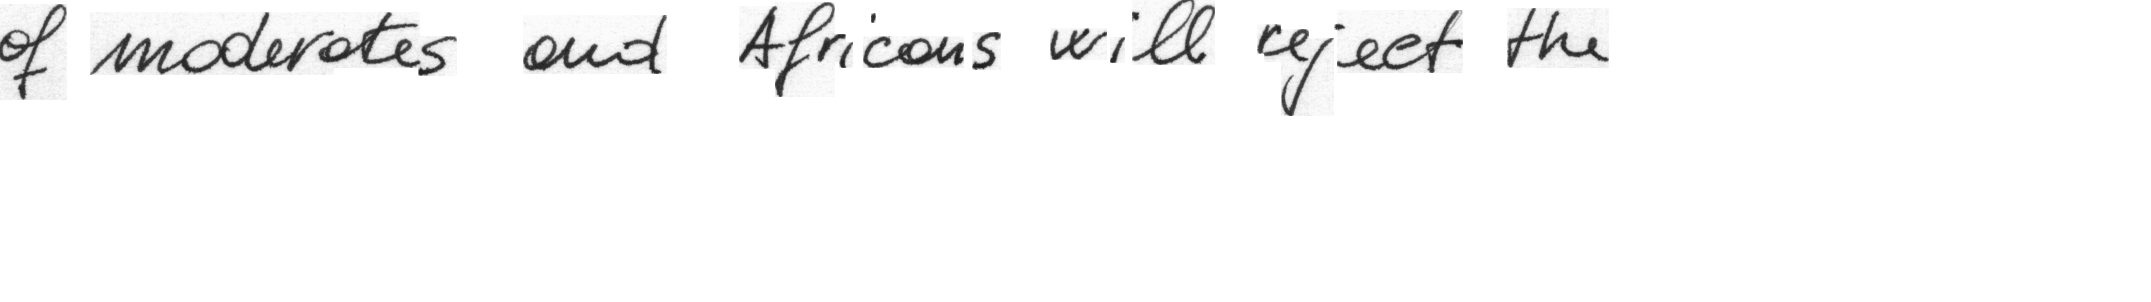 of moderates and Africans will reject the